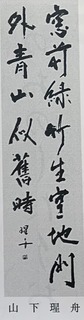 窓前緑竹生空地門
外青山似舊時 瑆舟
山下瑆舟